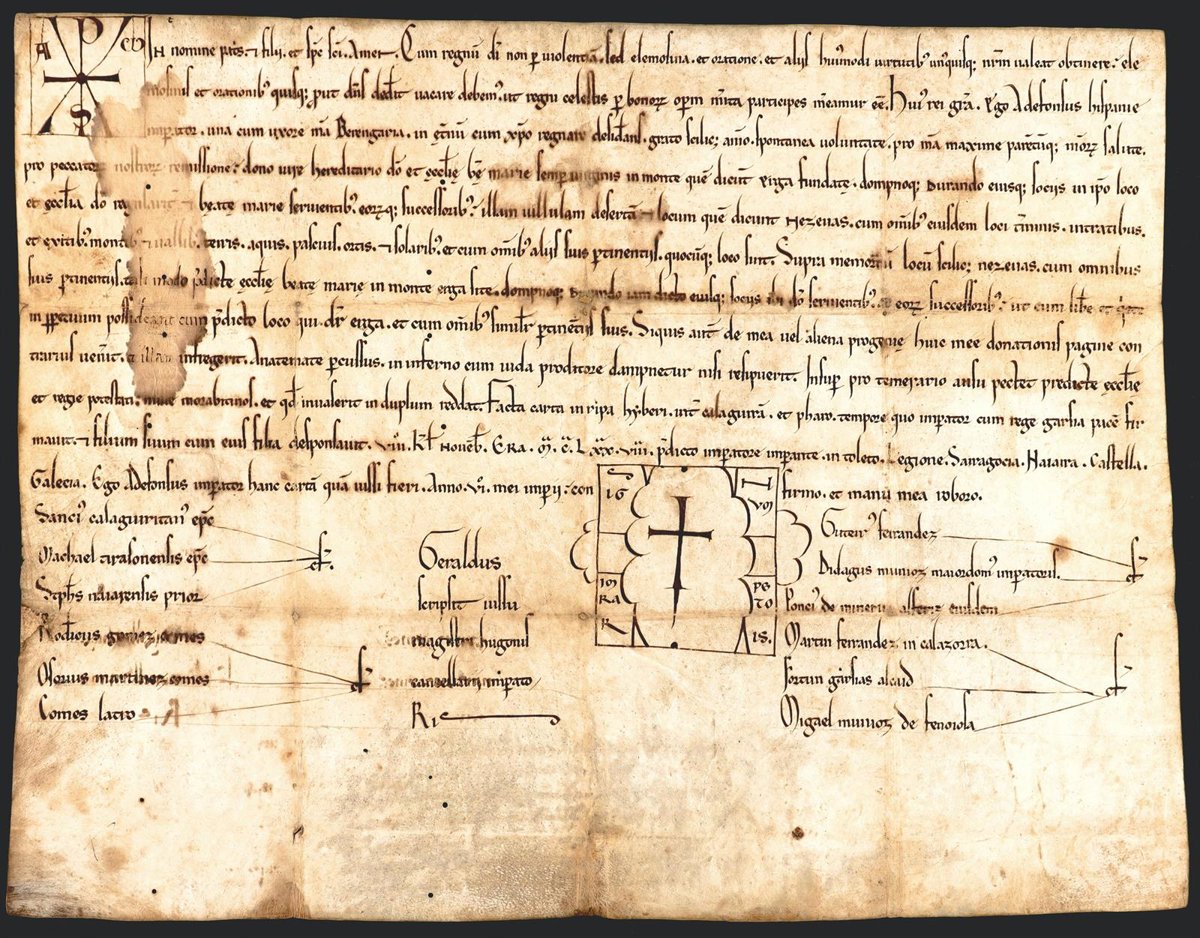 A P ω S
IN nomine patris. et filii. et spc sci. Amen. Cum regnũ di non p uiolentiã. sed elemosina. et oratione. et aliis huiusmodi uirtutibus unusquisq; nrm ualeat obtinere: ele
mosinis et orationibus quisq; put dns dedit uacare debem'. ut regni celestis p bonorum opm mita participes mereamur eē. Hui' rei gra. Ego Adefonsus hispanie
imperator. una cum uxore mã Berengaria. in etnũ cum xpo regnare desiderans. grato scilic; aĩo. spontanea uoluntate. pro mã maxime parẽtũq; meorum salute.
pro peccatorum nostrorum remissione: dono iure hereditario do et ęcclię bẽ marie semp uirginis in monte quẽ dicunt Yrga fundate. dompnoq; Durando eiusq; sociis in ipso loco
et ęcclia do regularit et beatę marie seruientib'. eorumq; successorib': illam uillulam desertã et locum quẽ dicunt Nezeuas. cum omib' eiusdem loci tminis. intratibus.
et exitib'. montib' et uallib'. terris. aquis. pascuis. ortis. et solarib'. et cum omib' aliis suis ptinentiis. quocũq; loco sint. Supra memoratũ locũ scilic; nezeuas. cum omnibus
suis ptinentiis. tali modo pdicte ęcclię beatę marię in monte erga site. dompnoq; Durando iam dicto eiusq; sociis ibi do seruientib'. et eorum successorib': ut cum libe et
in ppetuum possideant cum pdicto loco qui dr erga. et cum omib' similr ptinẽtiis suis. Siquis aut de mea uel aliena progenie huic mee donationis pagine con
trarius uenit. et illam infregerit. Anatemate pcussus. in inferno cum iuda proditore dampnetur nisi resipuerit. Insup pro temerario ausu pectet predicte ęcclię
et regie potestati. mille morabitinos. et qd inuaserit in duplum reddat. Facta carta in ripa hyberi. int calagurrã. et pharo. tempore quo imperator cum rege garsia pacẽ fir
mauit. et filium suum cum eius filia desponsauit. VIII. Kl Nouẽb. ERA. M. C. LXX. VIII. pdicto imperatore imperante. in toleto. Legione. Sarragocia. Naiara. Castella.
Galecia. Ego Adefonsus imperator hanc cartã quã iussi fieri. Anno. VI. mei imperii: con
firmo. et manu mea roboro.
SIG
I
VM
IM
RA
PE
TO
R
IS.
Sanci' calaguritan' epc
Michael tirasonensis epc
Stphs naiarensis prior
Rodicus gomez comes
Osorius martinez comes
Comes latro
Geraldus
scripsit iussu
magistri hugonis
cancellarii imperato
Ris
Guterr' ferrandez
Didagus munioz maiordom' imperatoris.
Ponci' de minerua alferiz eiusdem
Martin ferrandez in calazorra.
fortun garsias alcaid
Migael munioz de fenoiola